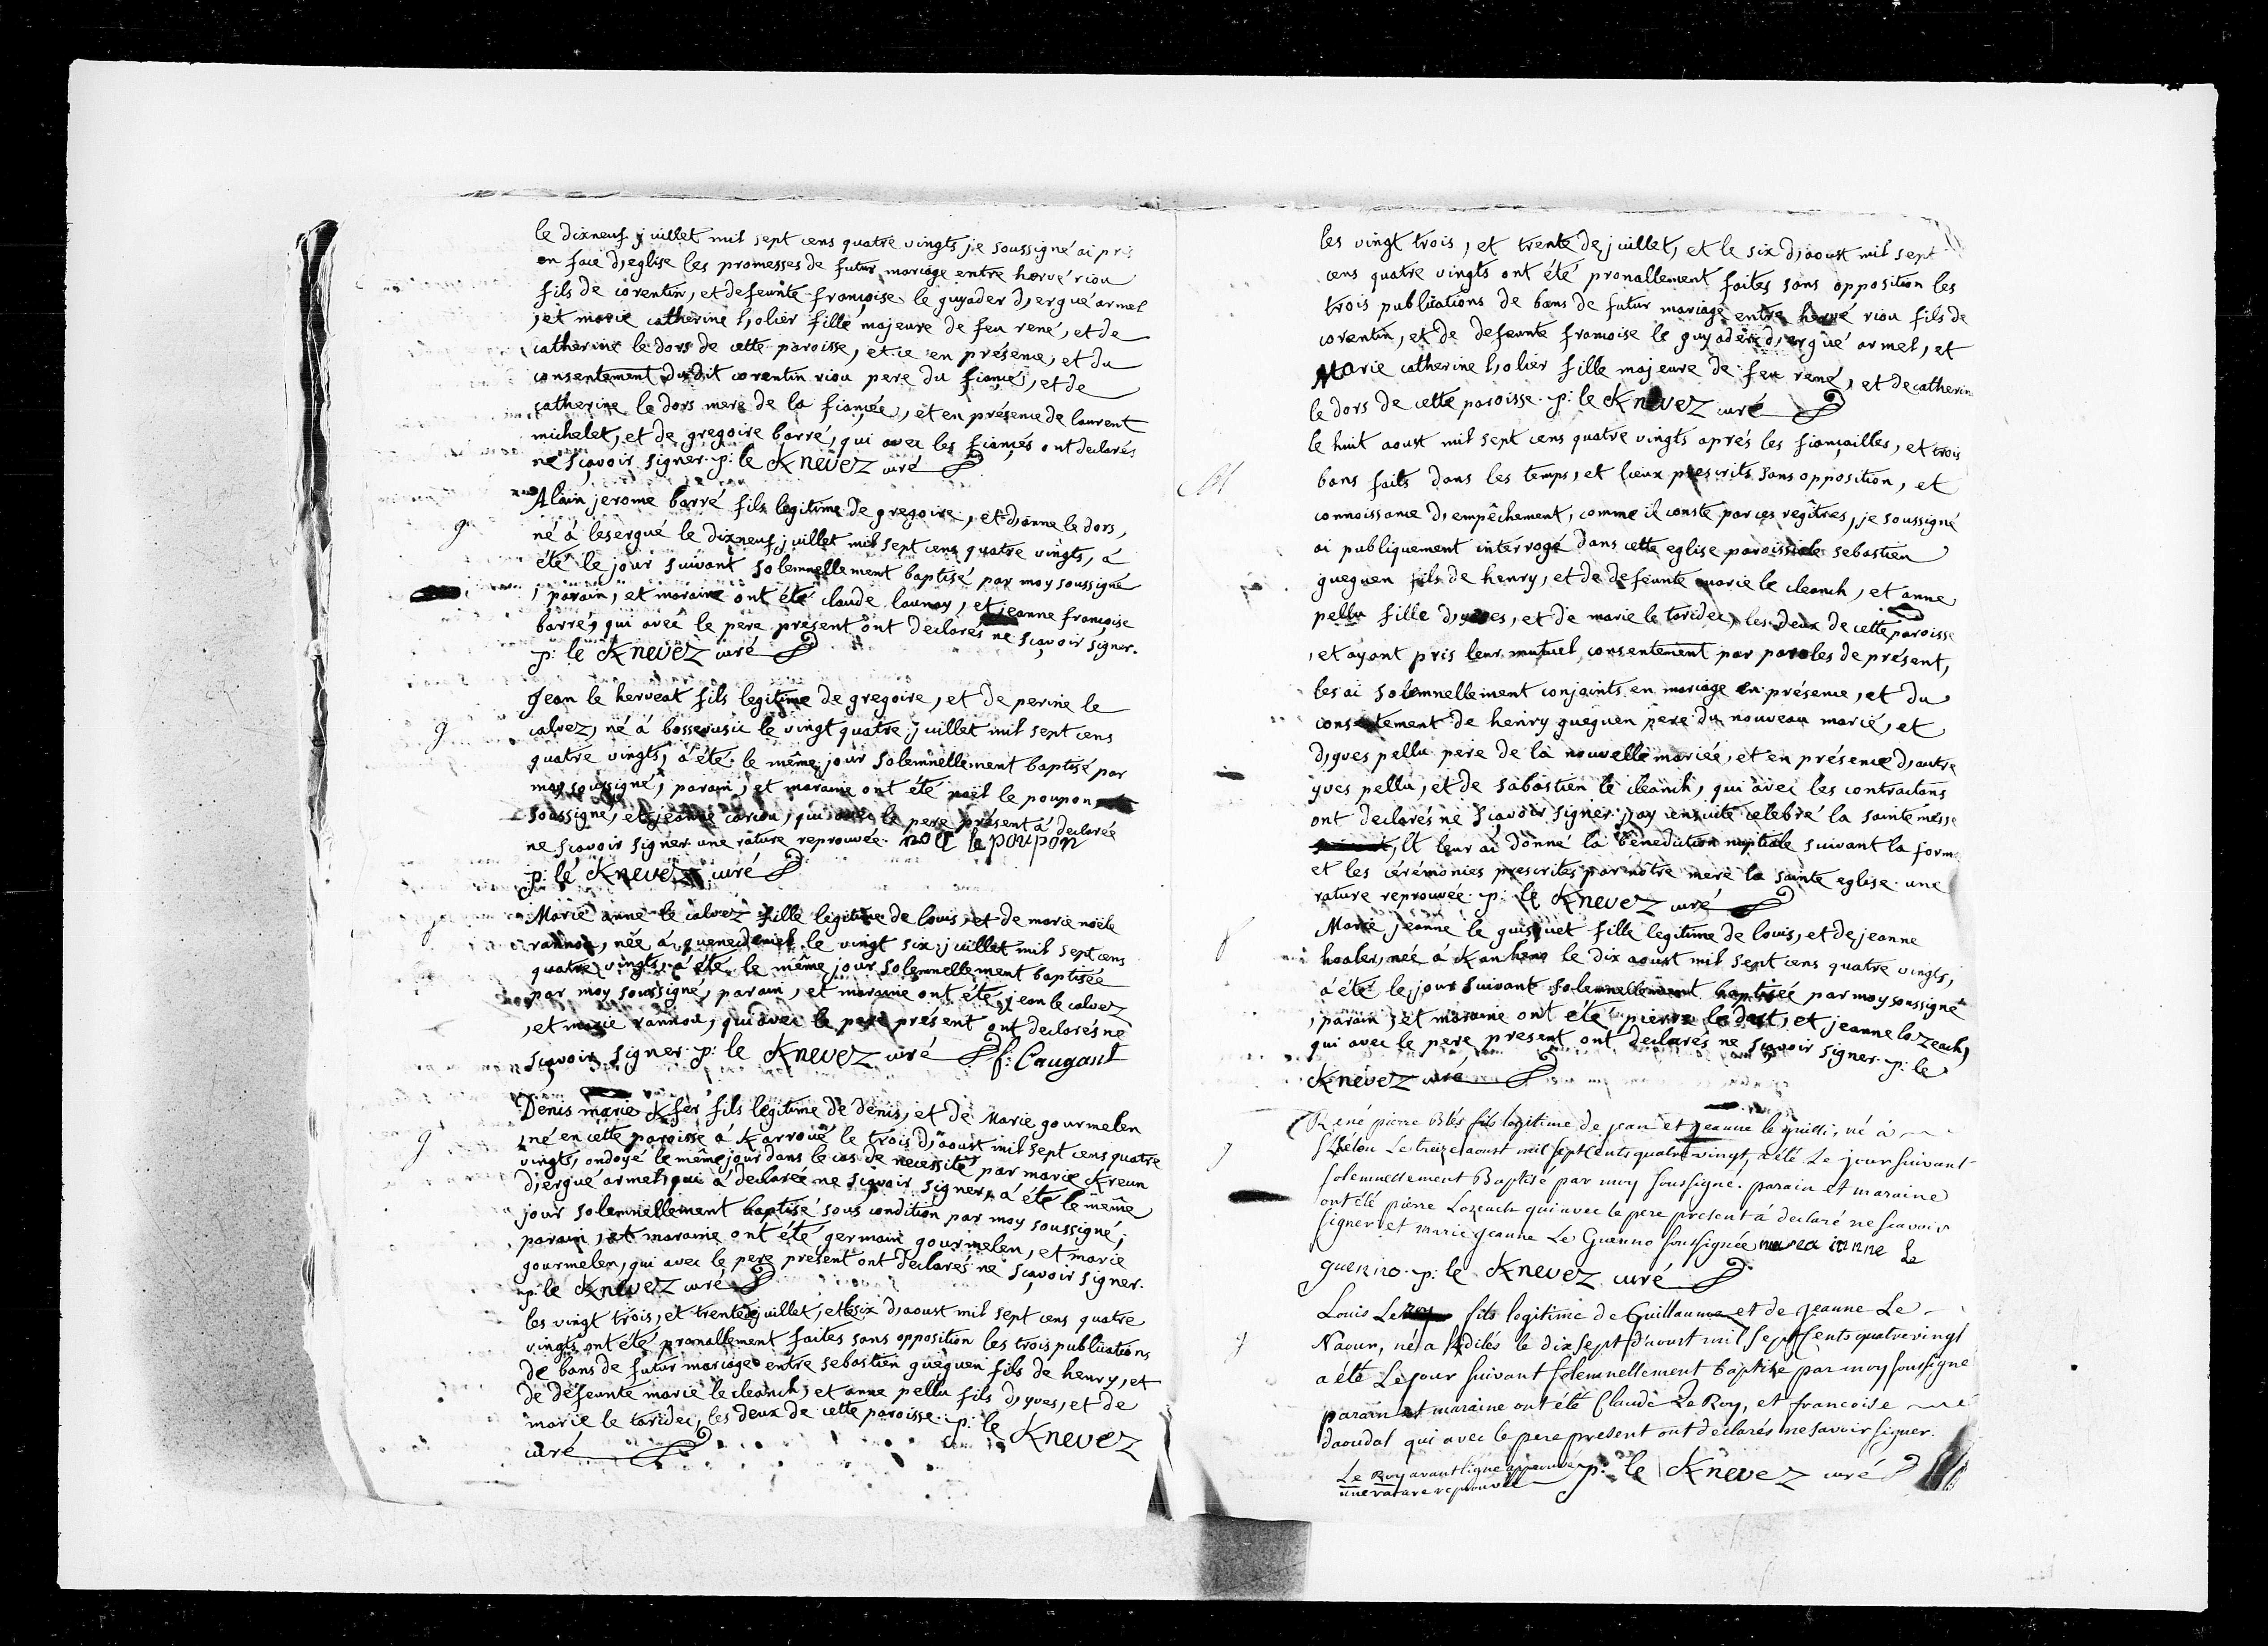 le dixneuf juillet mil sept cens quatre vingts je soussigné ai pris
en face d'eglise les promesses de futur mariage entre hervé riou
fils de corentin, et defeunte françoise le guyader d'ergué armel
, et marie catherine l'olier fille majeure de feu rené, et de
catherine le dors de cette paroisse, et ce en présence, et du
consentement dudit corentin riou pere du fiancé, et de
catherine le dors mere de la fiancée, et en présence de laurent
michelet, et de gregoire barré, qui avec les fiancés ont declarés
ne sçavoir signer. p: le Knevez curé
Alain jerome barré fils legitime de gregoire, et d'anne le dors,
g
né à lesergué le dixneuf juillet mil sept cens quatre vingts, à
été le jour suivant solemnellement baptisé par moy soussigné
, parain, et maraine ont été claude launay, et jeanne françoise
barré, qui avec le pere présent ont declarés ne sçavoir signer.
p: le Knevez curé
Jean le herveat fils legitime de gregoire, et de perine le
g
calvez, né à bosserusic le vingt quatre juillet mil sept cens
quatre vingts, à été le même jour solemnellement baptisé par
moy soussigné, parain, et maraine ont été noël le poupon
soussigné, et jeanne coriou, qui avec le pere présent à declarée
ne sçavoir signer. une rature reprouvée. noel le poupon
p: le Knevez curé
Marie anne le calvez fille legitime de louis, et de marie noële
f
vannou, née à le vingt six juillet mil sept cens
quatre vingts, à été le même jour solemnellement baptisée
par moy soussigné, parain, et maraine ont été jean le calvez
, et marie vannou, qui avec le pere présent ont declarés ne
sçavoir signer. p: le Knevez curé f: Caugant
Denis marie Kfer fils legitime de denis, et de Marie gourmelen
g
, né en cette paroisse à Karroué le trois d'aoust mil sept cens quatre
vingts, ondoyé le même jour dans le cas de necessité par marie Kreun
d'ergué armel, qui à declarée ne sçavoir signer, à été le même
jour solemnellement baptisé sous condition par moy soussigné,
parain, et maraine ont été germain gourmelen, et marie
gourmelen, qui avec le pere présent ont declarés ne sçavoir signer.
p: le Knevez curé
les vingt trois, et trente juillet, et le six d'aoust mil sept cens quatre
vingts ont été pronallement faites sans opposition les trois publications
de bans de futur mariage entre sebastien gueguen fils de henry, et
de defeunte marie le cleanch, et anne pellu fils d'yves, et de
marie le taridec, les deux de cette paroisse. p: le Knevez
curé
les vingt trois, et trente de juillet, et le six d'aoust mil sept
cens quatre vingts ont été pronallement faites sans opposition les
trois publications de bans de futur mariage entre hervé riou fils de
corentin, et de defeunte francoise le guyader d'ergué armel, et
Marie catherine l'olier fille majeure de feu rené, et de catherin
le dors de cette paroisse. p: le Knevez curé
le huit aoust mil sept cens quatre vingts aprés les fiançailles, et trois
M
bans faits dans les temps, et lieux prescrits sans opposition, et
connoissance d'empêchement, comme il conste par ces regîtres, je soussigné
ai publiquement interrogé dans cette eglise paroissiale sebastien
gueguen fils de henry, et de defeunte marie le cleanch, et anne
pellu fille d'yves, et de marie le taridec, les deux de cette paroisse
, et ayant pris leur mutuel consentement par paroles de présent,
les ai solemnellement conjoints en mariage en présence, et du
consentement de henry gueguen pere du nouveau marié, et
d'yves pellu pere de la nouvelle mariée, et en présence d'autre
yves pellu, et de sabastien le cleanch, qui avec les contractans
ont declarés ne sçavoir signer. j'ay ensuite celebré la sainte messe
et leur ai donné la bénediction nuptiale suivant la form
et les cérémonies prescrites par nôtre mere la sainte eglise. une
rature reprouvée. p: le Knevez curé
Marie jeanne le guisquet fille legitime de louis, et de jeanne
f
née à le dix aoust mil sept cens quatre vingts,
à été le jour suivant solemnellement baptisée par moy soussigné
, parain, et maraine ont été pierre le dast, et jeanne lozeach,
qui avec le pere présent ont declarés ne sçavoir signer. p: le
Knevez curé
René pierre fils legitime de jean et jeanne le né à
g
le treize aoust mil sept Cents quatre vingt, a été Le jour suivant
solemnellement Baptisé par moy soussigné. parain et maraine
ont été pierre Lozeach qui avec le pere present à declaré ne scavoir
signer et marie jeanne Le Guenno soussignée. marea ianne Le
guenno. p: le Knevez curé
Louis Le fils legitime de Guillaume et de jeanne Le
g
Naour, né a Kdilés le dix sept d'aoust mil sept Cents quatre vingt
a été Le jour suivant solemnellement baptise par moy soussigne
parain et maraine ont été Claude Le Roy, et francoise
daoudal qui avec le pere present ont declarés ne savoir signer.
Le Roy avant ligne approuvé p: le Knevez curé
une rature reprouvée